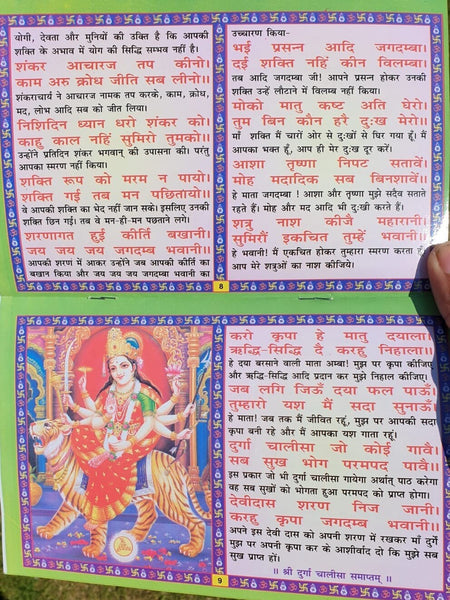 योगी, देवता और मुनियों की उक्ति है कि आपकी
शक्ति के अभाव में योग की सिद्धि सम्भव नहीं है।
शंकर आचारज तप कीनो।
काम अरु क्रोध जीति सब लीनो।।
शंकराचार्य ने आचारज नामक तप करके, काम, क्रोध,
मद, लोभ आदि सब को जीत लिया।
निशिदिन ध्यान धरो शंकर को।
काहु काल नहिं सुमिरो तुमको।।
उन्होंने प्रतिदिन शंकर भगवान् की उपासना की। परंतु
आपका स्मरण नहीं किया।
शक्ति रूप को मरम न पायो।
शक्ति गई तब मन पछितायो।।
वे आपकी शक्ति का भेद नहीं जान सके। इसलिए उनकी
शक्ति छिन गई। तब वे मन-ही-मन पछताने लगे।
शरणागत हुई कीर्ति बखानी।
जय जय जय जगदम्ब भवानी।।
आपकी शरण में आकर उन्होंने जब आपकी कीर्ति का
बखान किया और जय जय जय जगदम्बा भवानी का
उच्चारण किया-
भई प्रसन्न आदि जगदम्बा।
दई शक्ति नहिं कीन विलम्बा।।
तब आदि जगदम्बा जी! आपने प्रसन्न होकर उनकी
शक्ति उन्हें लौटाने में विलम्ब नहीं किया।
मोको मातु कष्ट अति घेरो।
तुम बिन कौन हरै दुःख मेरो।।
माँ शक्ति मैं चारों ओर से दुःखों से घिर गया हूँ। मैं
आपका भक्त हूँ, आप ही मेरे दुःख दूर करें।
आशा तृष्णा निपट सतावें।
मोह मदादिक सब बिनशावें।।
हे माता जगदम्बा ! आशा और तृष्णा मुझे सदैव सताते
रहते हैं। मोह और मद आदि भी दुःखी करते हैं।
शत्रु नाश कीजै महारानी।
सुमिरौं इकचित तुम्हें भवानी।।
हे भवानी! मैं एकचित होकर तुम्हारा स्मरण करता हूँ
आप मेरे शत्रुओं का नाश कीजिये।
8
करो कृपा हे मातु दयाला।
ऋद्धि-सिद्धि दै करहु निहाला।।
हे दया बरसाने वाली माता अम्बा! मुझ पर कृपा कीजिए
और ऋद्धि-सिद्धि आदि प्रदान कर मुझे निहाल कीजिए।
जब लगि जिऊँ दया फल पाऊँ।
तुम्हारो यश मैं सदा सुनाऊँ।
हे माता! जब तक मैं जीवित रहूं, मुझ पर आपकी सदा
कृपा बनी रहे और मैं आपका यश गाता रहूं।
दुर्गा चालीसा जो कोई गावै।
सब सुख भोग परमपद पावै।।
इस प्रकार जो भी दुर्गा चालीसा गायेगा अर्थात् पाठ करेगा
वह सब सुखों को भोगता हुआ परमपद को प्राप्त होगा।
देवीदास शरण निज जानी।
करहु कृपा जगदम्ब भवानी।।
अपने इस देवी दास को अपनी शरण में रखकर माँ दुर्गे
मुझ पर अपनी कृपा कर के आशीर्वाद दो कि मुझे सब
सुख प्राप्त हों।
।। श्री दुर्गा चालीसा समाप्तम् ।।
9